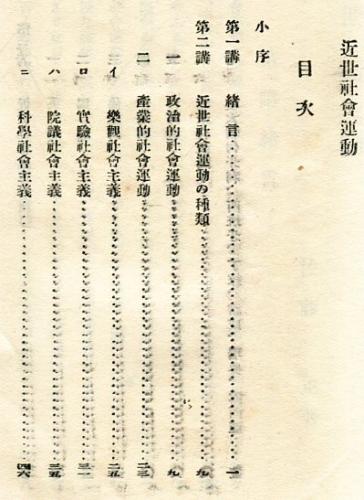 近世社會運動
目次
小序
第一講 緒言……一
第二講 近世社會運動の種類……九
一 政治的社會運動……九
二 產業的社會運動……二三
イ 樂觀社會主義……二五
ロ 實驗社會主義……三一
ハ 院議社會主義……三五
ニ 科學社會主義……四六